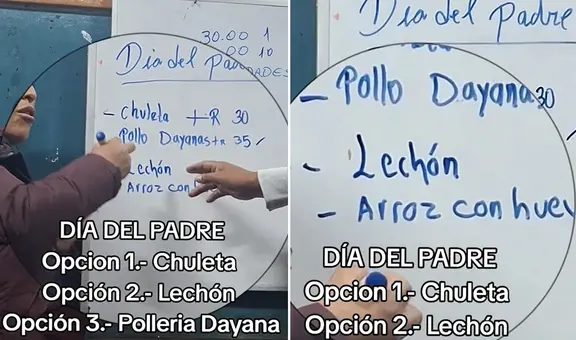 30.00 1
00 10
Día del Pad
DADES
- Chuleta +R 30
- Pollo Dayanas+R 35 /
Lechón
Arroz con
DÍA DEL PADRE
Opcion 1.- Chuleta
Opción 2.- Lechón
Opción 3.- Polleria Dayana
Día del Padre
- Pollo Dayana 30
- Lechón
- Arroz con huev
DÍA DEL PADRE
Opcion 1.- Chuleta
Opción 2.- Lechón